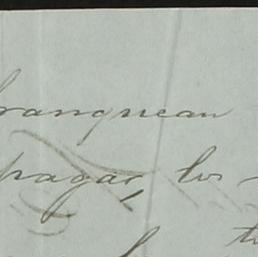 franquean
pagar, los